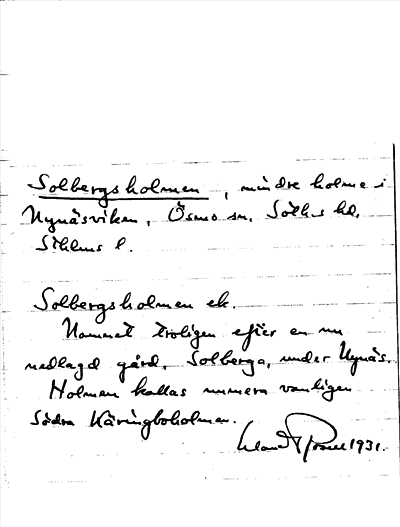 Solbergsholmen, mindre holme i
Nynäsviken, Ösmo sn, Sötl-s hd,
Sthlms l.
Solbergsholmen ek.
Namnet troligen efter en nu
nedlagd gård, Solberga, under Nynäs.
Holmen kallas numera vanligen
Södra Käringboholmen.
1931.